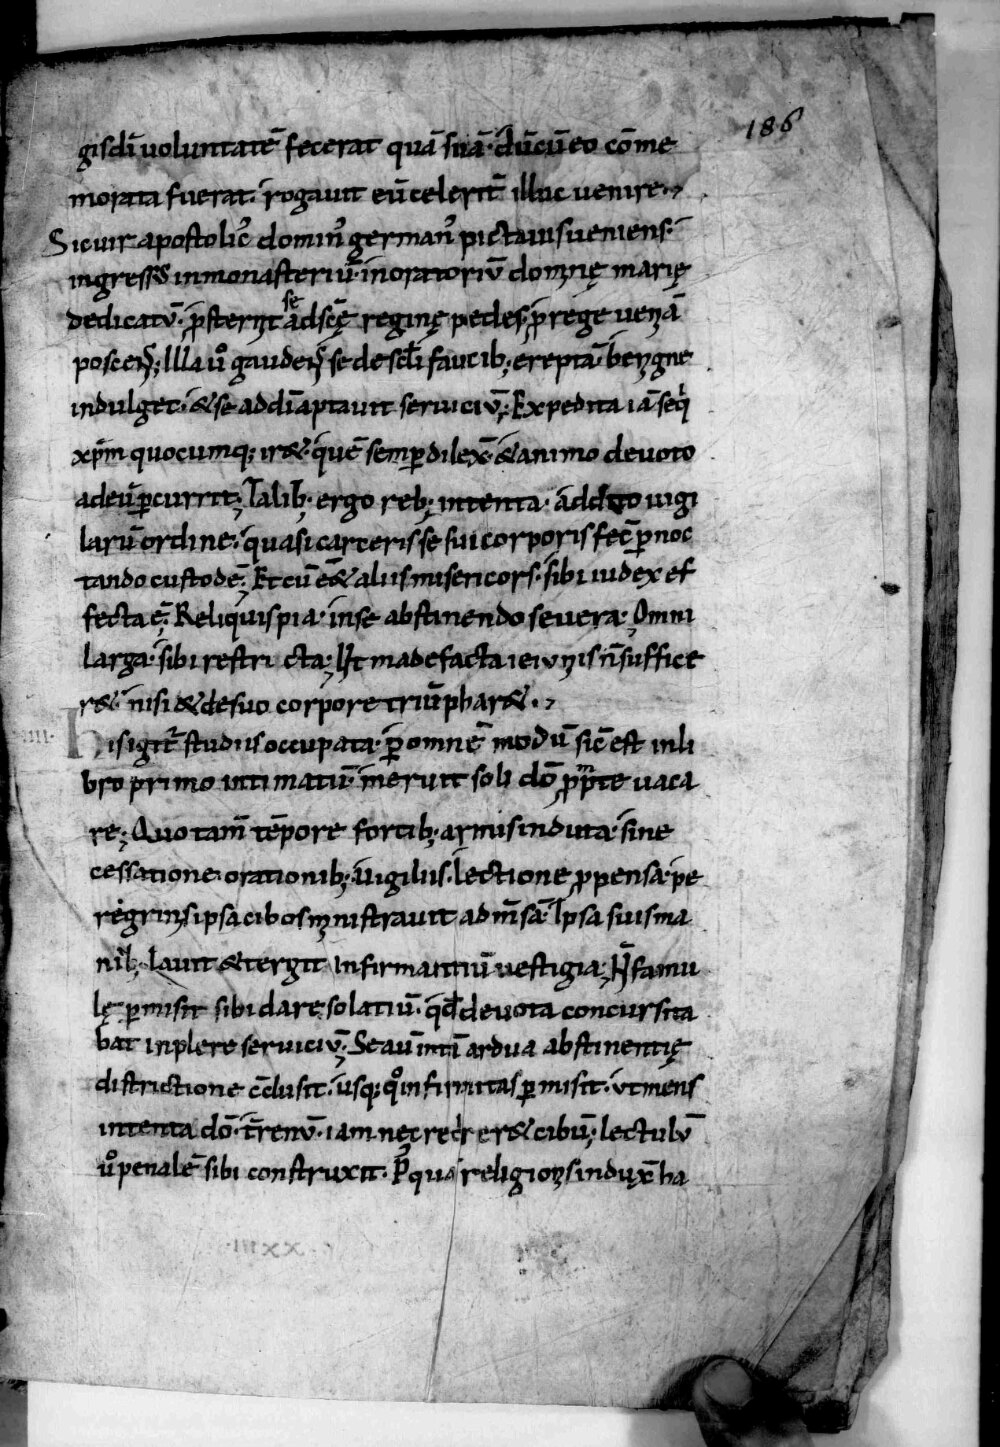 186
gis dī uoluntatē fecerat quā suā· dū cū eo cōme
morata fuerat· rogauit eū celerit̄ illuc uenire·
Sic uir apostolic᾽ domin᾽ german᾽ pictauis ueniens·
ingressus in monasteriū· in oratoriū domnę marię
dedicatū· p̄sternit se ad scę̄ reginę pedes, p̄ rege ueniā
poscens; Illa ū gaudens se de scłi faucib; ereptā· benigne
indulget· & se ad dī aptauit seruiciū; Expedita iā seq̇
xp̄m quocumq; ir&· quē semp dilex̄· & animo deuoto
ad eū pcurrit; Talib; ergo reb; intenta· addito uigi
larū ordine· quasi carceris se sui corporis fec̄ p noc
tando custodē; Et cū ēet aliis misericors· sibi iudex ef
fecta ē; Reliquis pia· in se abstinendo seuera; Omni
larga· sibi restri cta; Ut madefacta ieiuniis n̄ suffice
r&· nisi & de suo corpore triūphar&·
IIII· His igit̄ studiis occupata· p omnē modū sic̄ est in li
bro primo intimatū· meruit soli dō pmpte uaca
re; Quo tam̄ tēpore fortib; armis induta· sine
cessatione· orationib;· uigiliis· lectione ppensa· pe
regrinis ipsa cibos ministrauit ad m̄sā· Ipsa suis ma
nib; lauit & tergit infirmantiū uestigia; N̄ famu
lę pmisit sibi dare solatiū· qd deuota concursita
bat inplere seruiciū; Se aū intī ardua abstinentię
districtione c̄clusit· usq; qͦ infirmitas pmisit· ut mens
intenta dō· t̄renū· iam nec req̇rer& cibū; lectulū
ū penalē sibi construxit· P᾽ quā religionis indux̄ ha